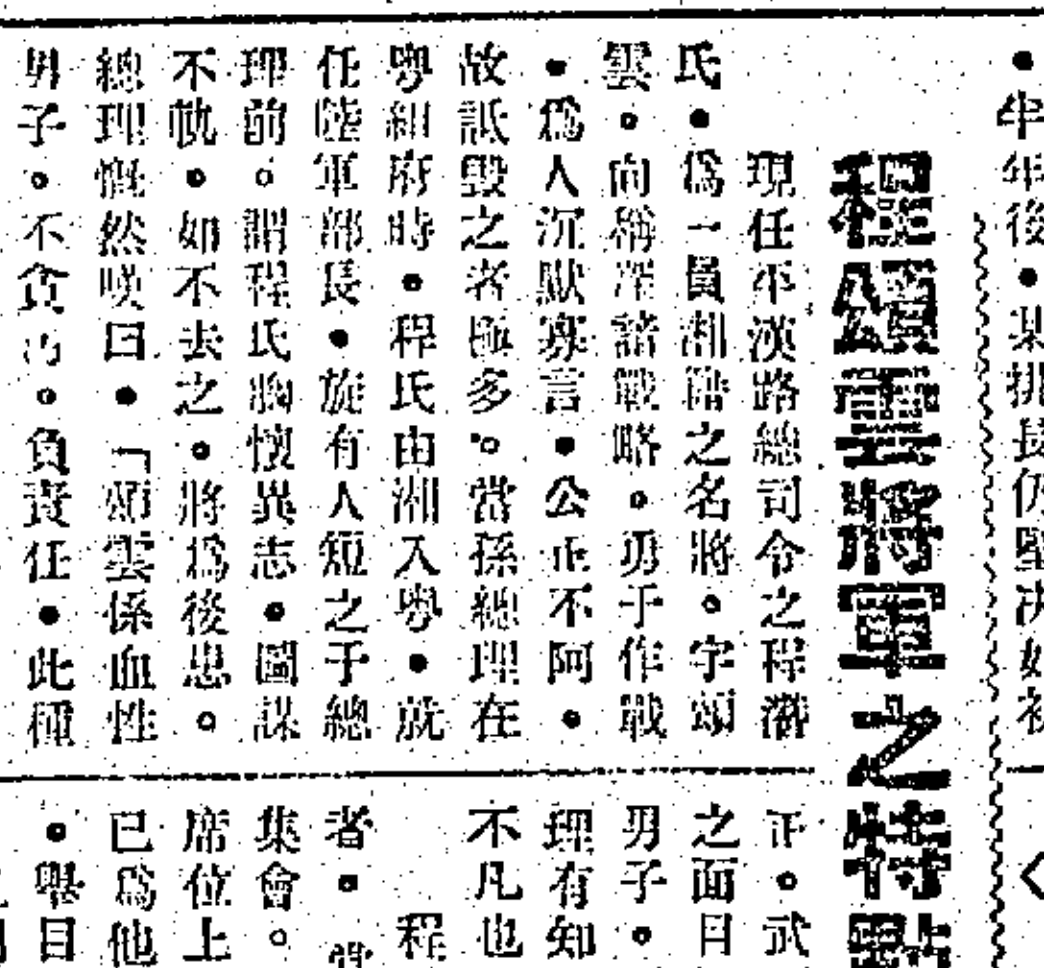 半年後•某排長仍堅决如初
程頌雲將軍之特點
現任平漢路總司令之程潛
氏•爲一員湘籍之名將。字頌
雲。向稱深諳戰略。勇于作戰
•爲人沉默寡言•公正不阿•
故詆毀之者極多。當孫總理在
粤組府時•程氏由湘入粤•就
任陸軍部長•旋有人短之于總
理前。謂程氏胸懷異志•圖謀
不軌•如不去之。將爲後患。
總理慨然嘆曰•「頌雲係血性
男子。不貪污。負責任•此種
正。武
之面目
男子•
理有知
不凡也
程
者。當
集會。
席位上
已爲他
。舉目